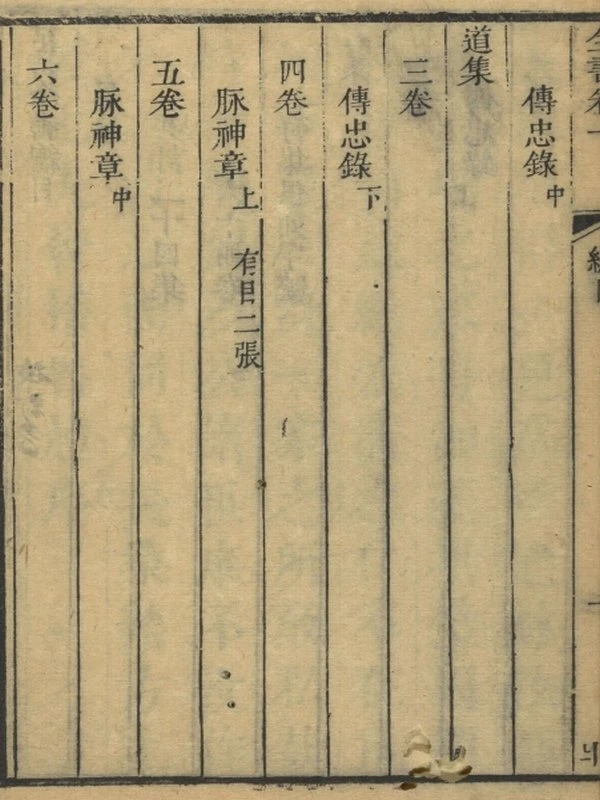 全書卷一
傳忠錄 中
道集
三卷
傳忠錄 下
四卷
脉神章 上 有目二張
五卷
脉神章 中
六卷